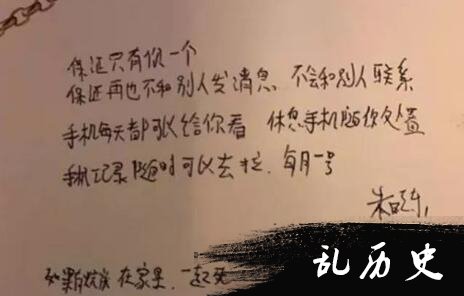 保证只有你一个
保证再也不和别人发消息 不会和别人联系
手机每天都可以给你看 休息手机随你处置
手机记录随时可以去拉.每月一号
朱晓东
如果 在家里.一起死
乱历史